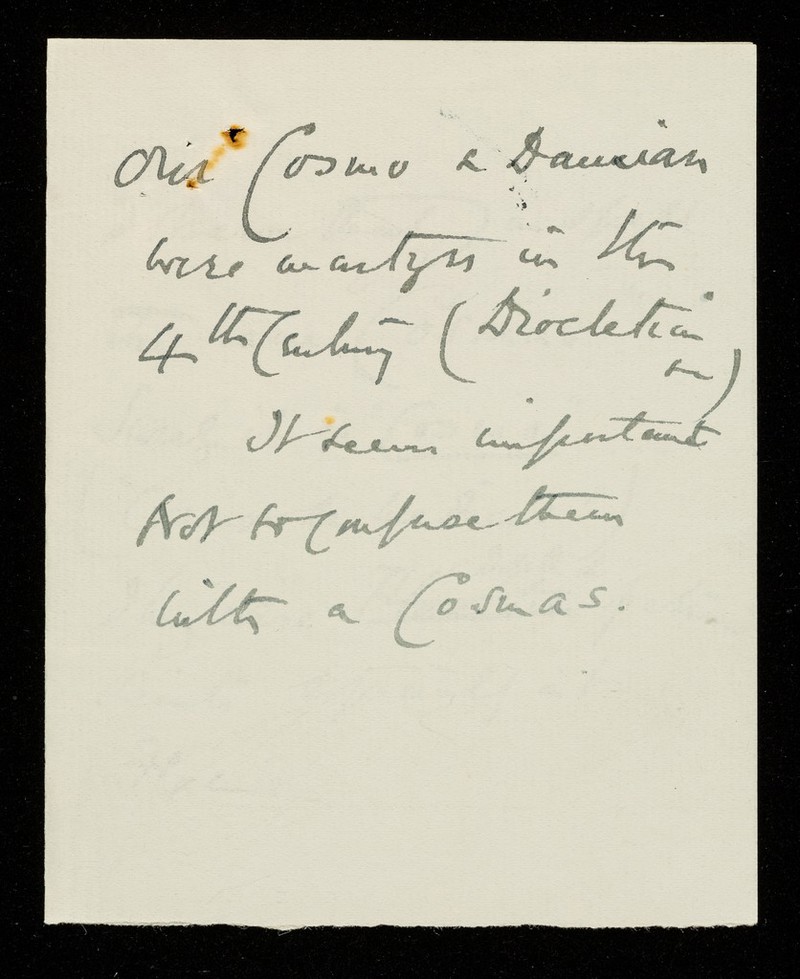 Our Cosmo & Damian
were martyrs in the
4th Century (Diocletian
on)
It seems important
Not to confuse them
with a Cosmas.